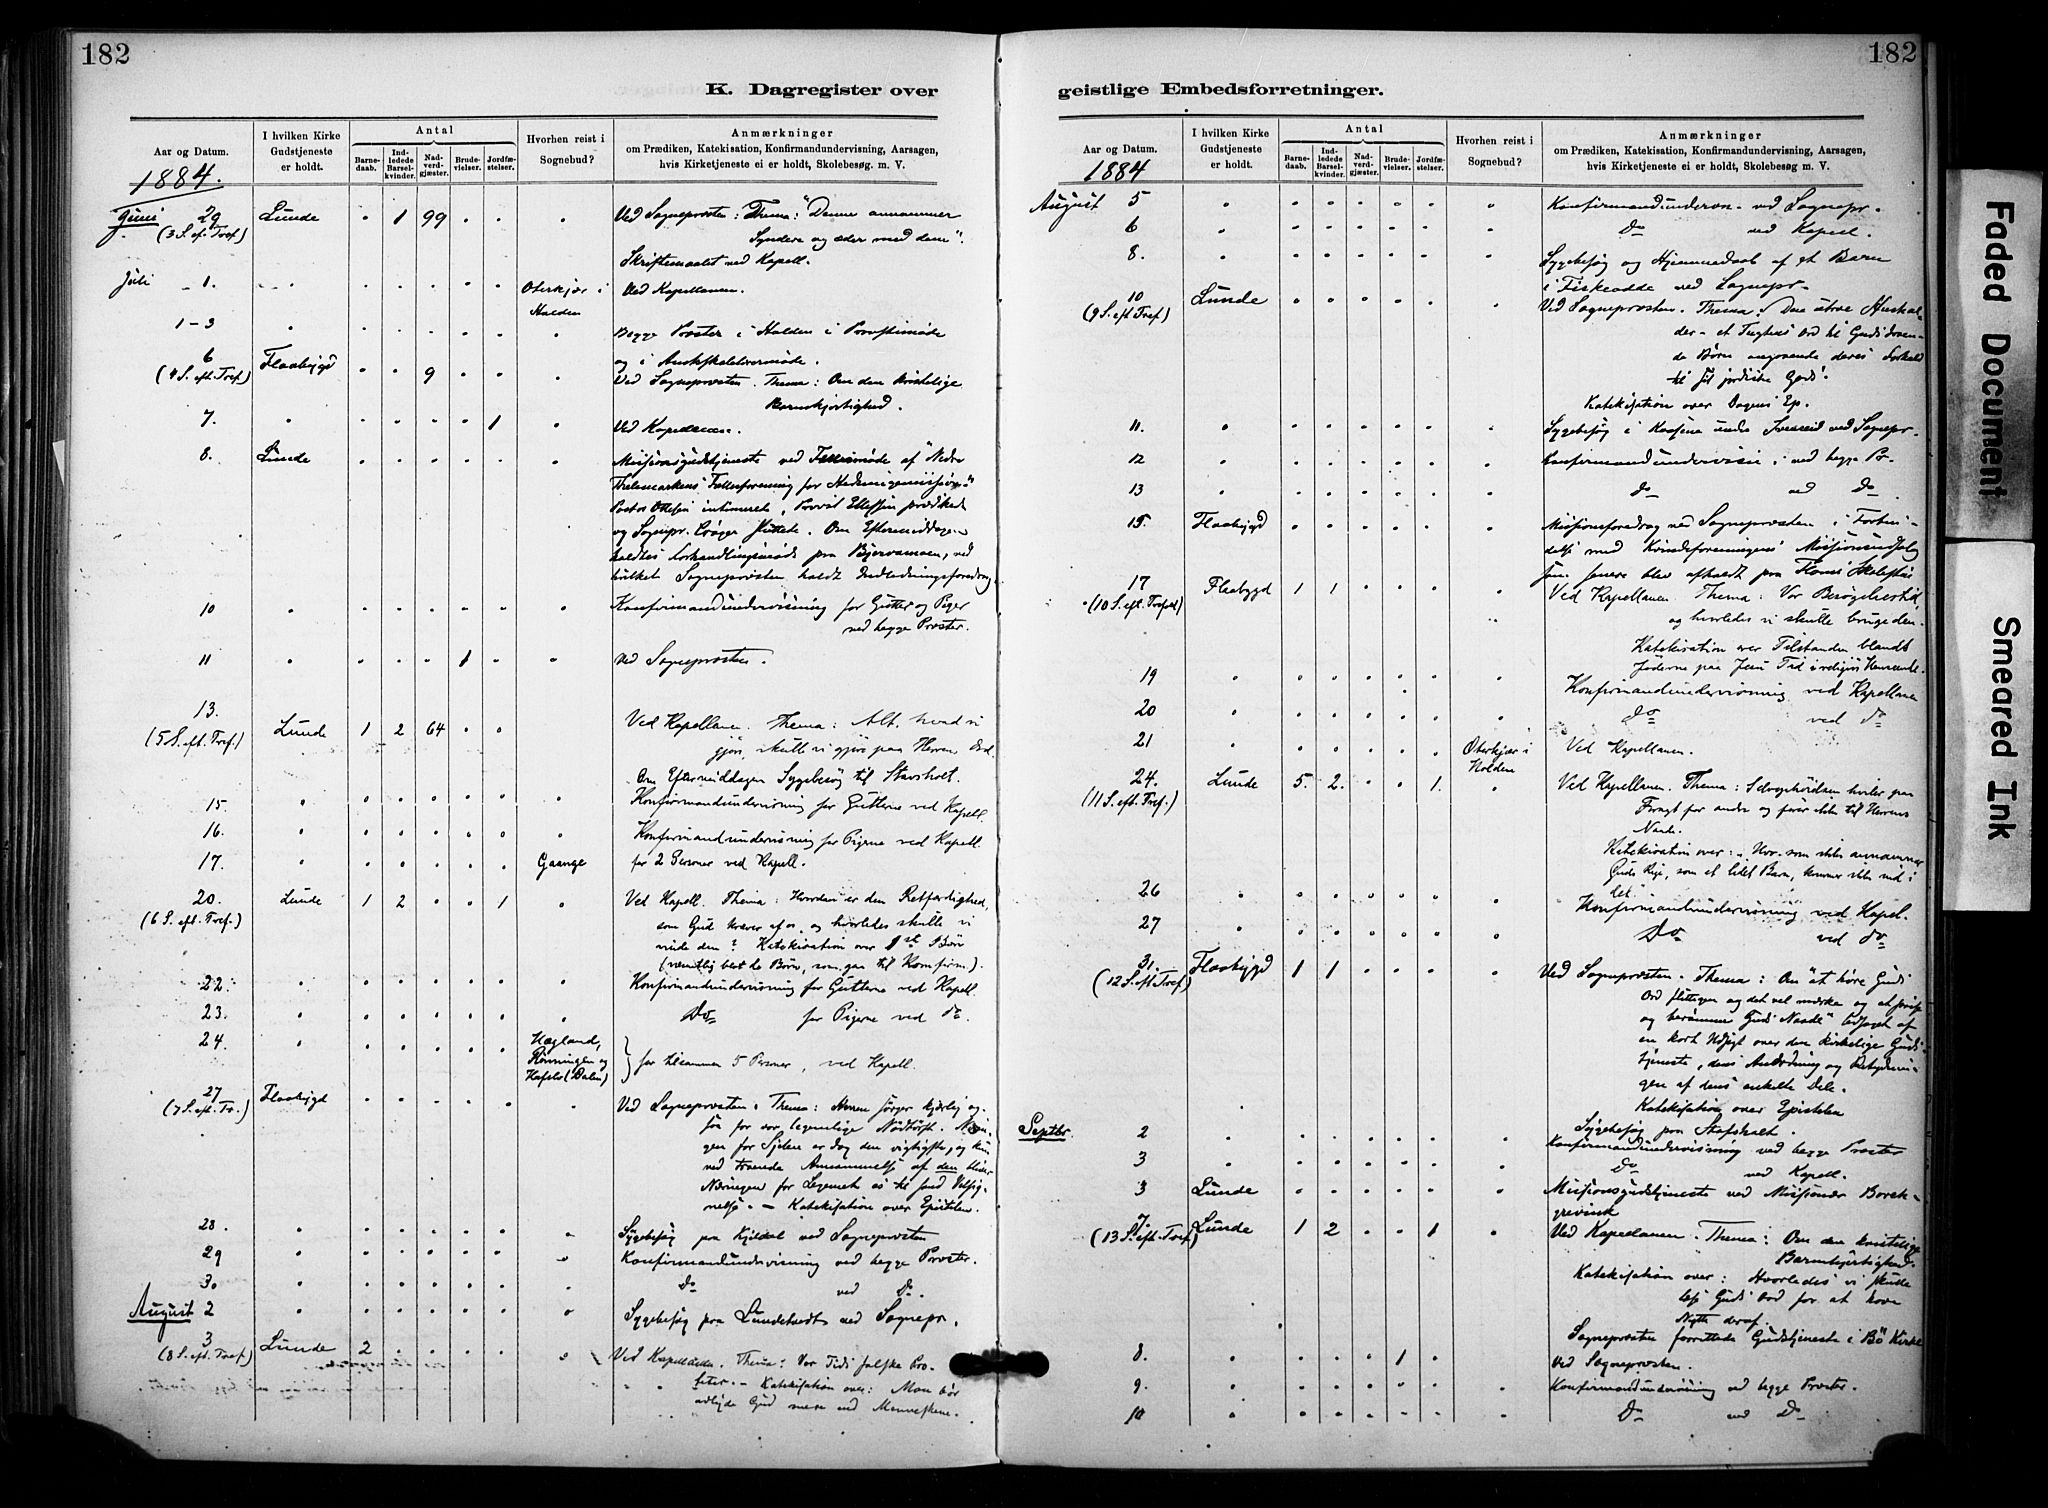 182
K. Dagregister over
Aar og Datum.
I hvilken Kirke Gudstjeneste er holdt.
Antal
Barnedaab.
Indledede Barselkvinder.
Nadverdgjæster.
Brudevielser.
Jordfæstelser.
Hvorhen reist i Sognebud?
Anmærkninger
om Prædiken, Katekisation, Konfirmandundervisning, Aarsagen,
hvis Kirketjeneste ei er holdt, Skolebesøg m. V.
1884.
Juni 29 Lunde . 1 99 . . . Ved Sogneprosten: Thema: "Denne annammer
(3 S. ef. Tref.) Syndere og æder med dem".
Skriftemaalet ved Kapell.
Juli 1. Oterkjær i Ved Kapellanen.
Holden
1-3 Begge Prester i Holden i Provstimøde
6 Flaabygd . . 9 og i
(4 S. eft. Tref.) Ved Sogneprosten. Thema: Om den kristelige
Barmhjertighed.
7. 1 Ved Kapellanen.
8. Lunde Missionsgudstjeneste ved af "Nedre
Thelemarkens Fællesforening for Hedningemissjon"
intimerede, Provst prædikede
og Sognepr. Om Eftermiddagen
holdtes Forhandlingsmøde paa ved
hvilket Sogneprosten holdt Indledningsforedrag.
10 Konfirmandundervisning for Gutter og Piger
ved begge Prester.
11 1 Ved Sogneprosten.
13.
(5 S. eft. Tref.) Lunde 1 2 64 . . Ved Kapellanen. Thema: Alt, hvad vi
gjør, skulle vi gjøre paa Herrens Ord.
Om Eftermiddagen Sygebesøg til Stavsholt.
15. Konfirmandundervisning for Gutterne ved Kapell.
16. Konfirmandundervisning for Pigerne ved Kapell.
17. Gaange for 2 Personer ved Kapell.
20. Lunde 1 2 . . 1 . Ved Kapell. Thema: Hvordan er den Retfærdighed,
(6 S. eft. Tref.) som Gud kræver af os, og hvorledes skulle vi
vinde den? Katekisation over
(nemlig blot de Børn, som gaa til Konfirm.).
22. Konfirmandundervisning for Gutterne ved Kapell.
23. Do for Pigerne ved do.
24. Hægland,
Rönningen og for tilsammen 5 Personer, ved Kapell.
(Dalen)
27 Flaabygd Ved Sogneprosten. Thema: Herren sørger kjærlig og-
(7 S. eft. Tr.) saa for vor legemlige Nødtørft.
gen for Sjelen er dog den vigtigste, og kun
ved troende Annammelse af den bliver
Næringen for Legemet os til sand Velsig-
nelse. - Katekisation over Epistelen.
28. Sygebesøg paa Kjeldal ved Sogneprosten
29 Konfirmandundervisning ved begge Prester.
30 Do ved Do.
August 2 Sygebesøg paa Lundstvedt ved Sognepr.
3 Lunde 2 Ved Kapellanen. Thema: Vor Tids falske Pro-
(8 S. eft. Tref.) feter. - Katekisation over: Man bør
adlyde Gud mere end Menneskene.
182
geistlige Embedsforretninger.
Aar og Datum.
I hvilken Kirke Gudstjeneste er holdt.
Antal
Barnedaab.
Indledede Barselkvinder.
Nadverdgjæster.
Brudevielser.
Jordfæstelser.
Hvorhen reist i Sognebud?
Anmærkninger
om Prædiken, Katekisation, Konfirmandundervisning, Aarsagen,
hvis Kirketjeneste ei er holdt, Skolebesøg m. V.
1884
August 5 Konfirmandunderv. ved Sognepr.
6 Do ved Kapell.
8. Sygebesøg og Hjemmedaab af et Barn
i Fiskeodde ved Sognepr.
10 Lunde Ved Sogneprosten. Thema: Den utro Hushol-
(9 S. eft Tref) der - et Tugtens Ord til Guds troen-
de Børn angaaende deres Forhold
til sit jordiske Gods.
Katekisation over Dagens Ep.
11. Sygebesøg i under ved Sognepr.
12 Konfirmandundervisn. ved begge Pr.
13 Do ved Do
15. Flaabygd Missionsforedrag ved Sogneprosten i Forbin-
delse med Kvindeforeningens Missionsudsalg
som senere blev afholdt paa Skolestue
17 Flaabygd 1 1 . . . Ved Kapellanen. Thema: Vor Besøgelsestid,
(10 S. eft. Trefold) og hvorledes vi skulle bruge den.
Katekisation over Tilstanden blandt
Jøderne paa Jesu Tid i religiøs Henseende.
19 Konfirmandundervisning ved Kapellanen
20 Do ved do
21 Oterkjær i Ved Kapellanen.
Holden
24. Lunde 5. 2. . . 1. Ved Kapellanen. Thema: Selvgodheden hviler paa
(11 S. eft. Tref.) Foragt for andre og fører ikke til Herrens
Naade.
Katekisation over: Hvo som ikke annammer
Guds Rige, som et lidet Barn, kommer ikke ind i
det.
26 Konfirmandundervisning ved Kapel.
27 Do ved do
31 Flaabygd 1 1 Ved Sogneprosten. Thema: Om "at høre Guds
(12 S. eft. Tref) Ord flittigen og det vel mærke og at prise
og berømme Guds Naade" ledsaget af
en kort Udsigt over den kirkelige Guds-
tjeneste, dens Anordning og Betydnin-
gen af dens enkelte Dele.
Katekisation over Epistelen
Septbr. 2 Sygebesøg paa Stafsholt.
Konfirmandundervisning ved begge Prester
3 Do ved Kapell.
3 Lunde Missionsgudstjeneste ved Missionær Borch-
grevink
7. Lunde 1 2 . . 1 Ved Kapellanen. Thema: Om den kristelige
(13 S. eft. Tref) Barmhjertighed.
Katekisation over: Hvorledes vi skulle
læse Guds Ord for at have
Nytte deraf.
Sogneprosten forrettede Gudstjeneste i Bø Kirke
8. 1 Ved Sogneprosten.
9. Konfirmandundervisning ved begge Prester.
10 Do ved Do
Faded Document
Smeared Ink